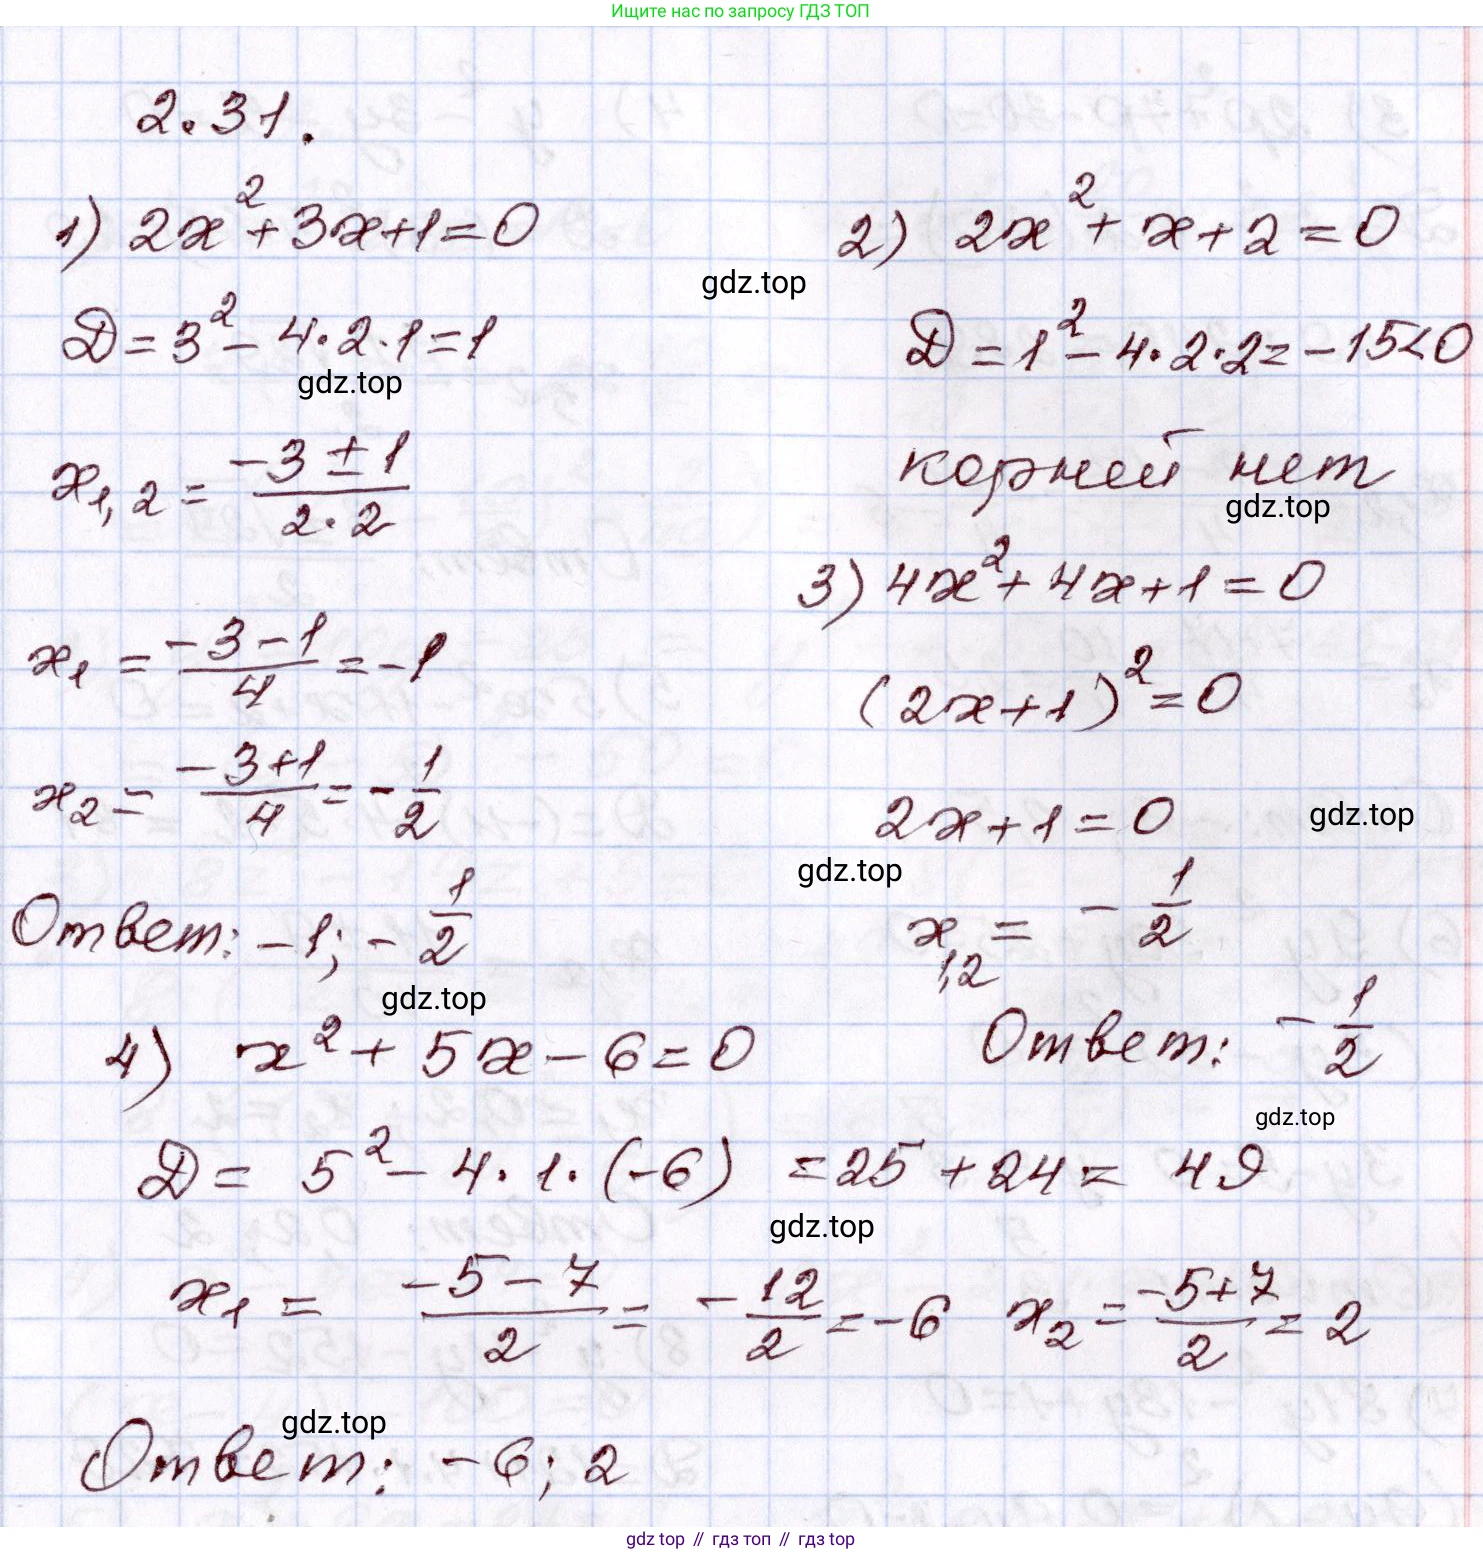 Ищите нас по запросу ГДЗ ТОП
2.31.
1) 2x² + 3x + 1 = 0
D = 3² - 4·2·1 = 1
gdz.top
x₁,₂ = (-3 ± 1)/(2·2)
x₁ = (-3-1)/4 = -1
x₂ = (-3+1)/4 = -1/2
Ответ: -1; -1/2
gdz.top
2) 2x² + x + 2 = 0
gdz.top
D = 1² - 4·2·2 = -15 < 0
корней нет
gdz.top
3) 4x² + 4x + 1 = 0
(2x+1)² = 0
2x + 1 = 0
gdz.top
gdz.top
x₁,₂ = -1/2
Ответ: -1/2
gdz.top
4) x² + 5x - 6 = 0
D = 5² - 4·1·(-6) = 25 + 24 = 49
gdz.top
x₁ = (-5-7)/2 = -12/2 = -6 x₂ = (-5+7)/2 = 2
gdz.top
Ответ: -6; 2
gdz top // гдз топ // гдз top